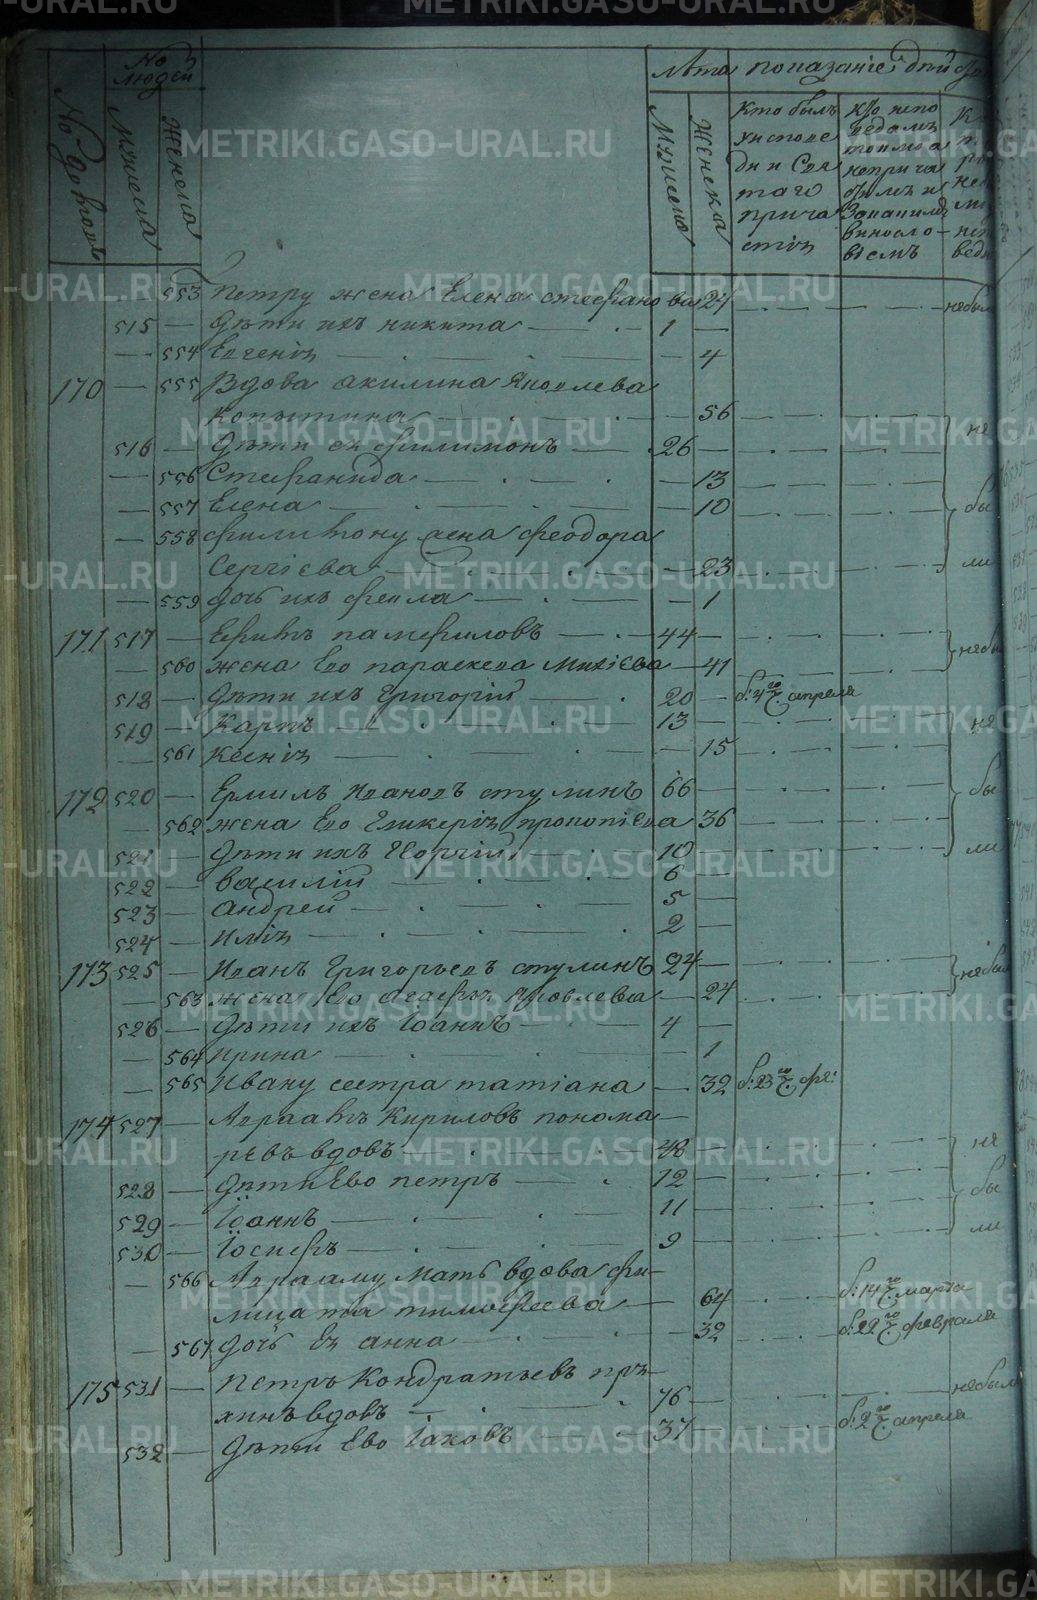 № людей
Лѣта показаніе дѣй
№ дворовъ
Мужеска
Женска
Мужеска
Женска
Кто былъ
у исповѣ
ди и Свя
таго
прича
стія
553 Петру жена Елена стефанова 24 небыл
515 Дѣти ихъ никита 1
554 Евгенія 4
170 555 Вдова акилина Яковлева
Копытина 56 не
516 Дѣти ея Филимонъ 26
556 Стефанида 13
557 Елена 10 бы
558 Филимону жена феодора
Сергіева 23 ли
559 дочь ихъ фекла 1
171 517 Ефимъ памфиловъ 44 небы
560 жена Его параскева Михіева 41
518 Дѣти ихъ Григорій 20 б: 4го апреля
519 Карпъ 13 не
561 Ксенія 15
172 520 Ермилъ Ивановъ стулинъ 66 бы
562 жена Его Гликерія прокопіева 36
521 Дѣти ихъ Георгій 10 ли
522 василій 6
523 андрей 5
524 илія 2
173 525 Иванъ Григорьевъ стулинъ 24 небыл
563 жена Его агафья Яковлева 24
526 Дѣти ихъ Іоаннъ 4
564 ирина 1
565 Ивану сестра татіана 32 б: 23го фев:
174 527 Авраамъ Кириловъ понома
ревъ вдовъ 48 не
528 Дѣти Его петръ 12
529 Іоаннъ 11 бы
530 Іосифъ 9 ли
566 Аврааму мать вдова фи
лицата тимофеева 64 б: 14го марта
567 дочь Ея анна 32 б: 22го февраля
175 531 Петръ Кондратьевъ пря
хинъ вдовъ 76 небыл
532 Дѣти Его Іаковъ 37 б: 2го апреля
METRIKI.GASO-URAL.RU